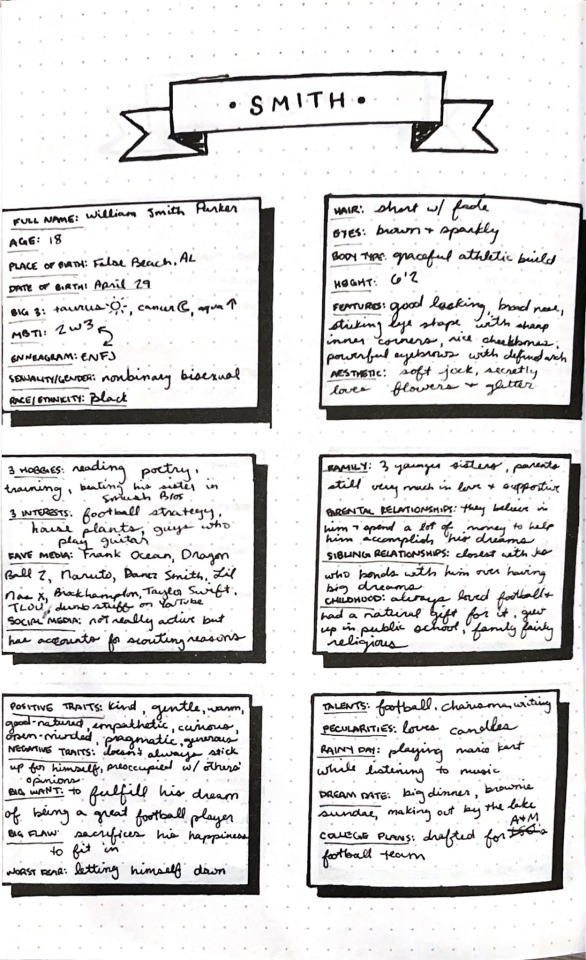 • SMITH •
FULL NAME: William Smith Parker
AGE: 18
PLACE OF BIRTH: False Beach, AL
DATE OF BIRTH: April 29
BIG 3: taurus ☼, cancer ☾, aqua ↑
MBTI: 2w3
ENNEAGRAM: ENFJ
SEXUALITY/GENDER: nonbinary bisexual
RACE/ETHNICITY: Black
HAIR: short w/ fade
EYES: brown + sparkly
BODY TYPE: graceful athletic build
HEIGHT: 6'2
FEATURES: good looking, broad nose,
striking eye shape with sharp
inner corners, nice cheekbones,
powerful eyebrows with defined arch
AESTHETIC: soft jock, secretly
loves flowers + glitter
3 HOBBIES: reading poetry,
training, beating his sister in
Smash Bros
3 INTERESTS: football strategy,
house plants, guys who
play guitar
FAVE MEDIA: Frank Ocean, Dragon
Ball Z, Naruto, Danez Smith, Lil
Nas X, Brockhampton, Taylor Swift,
TLOU, dumb stuff on YouTube
SOCIAL MEDIA: not really active but
has accounts for scouting reasons
FAMILY: 3 younger sisters, parents
still very much in love + supportive
PARENTAL RELATIONSHIPS: they believe in
him + spend a lot of money to help
him accomplish his dreams
SIBLING RELATIONSHIPS: closest with
who bonds with him over having
big dreams
CHILDHOOD: always loved football +
had a natural gift for it, grew
up in public school, family fairly
religious
POSITIVE TRAITS: kind, gentle, warm,
good-natured, empathetic, curious
open-minded, pragmatic, generous
NEGATIVE TRAITS: doesn't always stick
up for himself, preoccupied w/ others'
opinions
BIG WANT: to fulfill his dream
of being a great football player
BIG FLAW: sacrifices his happiness
to fit in
WORST FEAR: letting himself down
TALENTS: football, charisma, writing
PECULARITIES: loves candles
RAINY DAY: playing mario kart
while listening to music
DREAM DATE: big dinner, brownie
sundae, making out by the lake
COLLEGE PLANS: drafted for A+M
football team